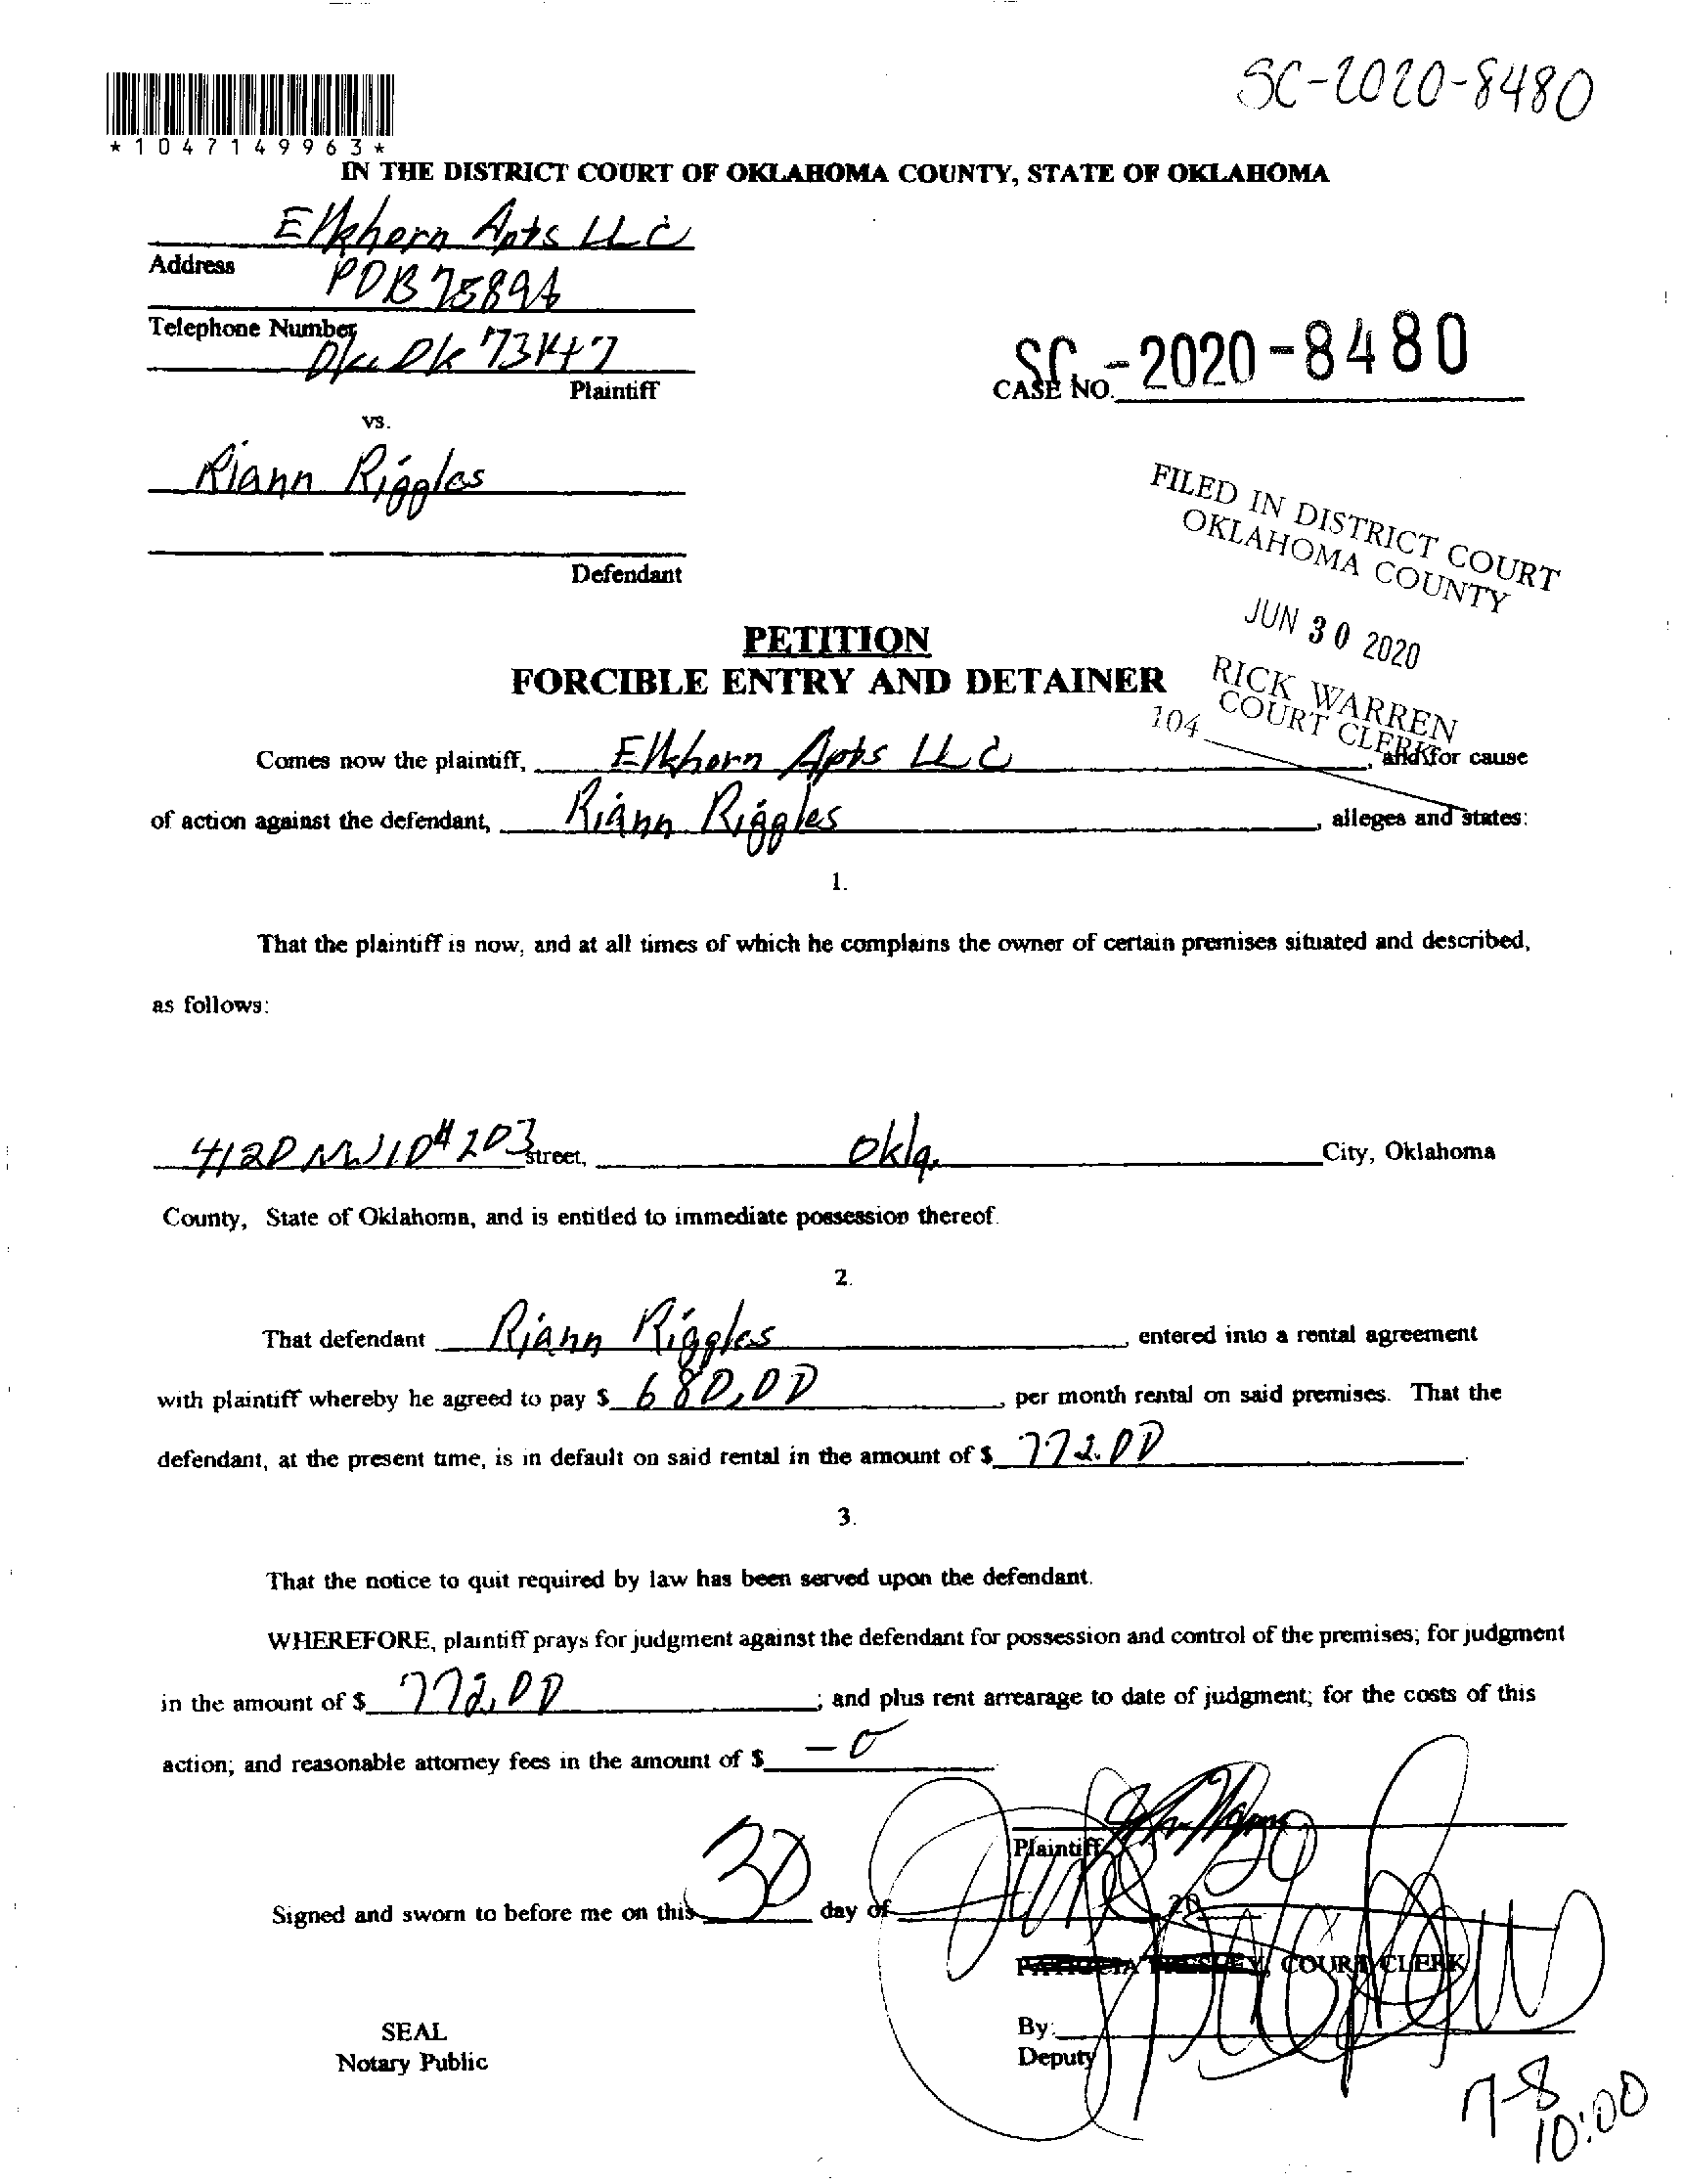 SC-2020-8480
*1047149963*
IN THE DISTRICT COURT OF OKLAHOMA COUNTY, STATE OF OKLAHOMA
Elkhorn Apts LLC
Address
POB 75894
Telephone Number
Okc Ok 73147
Plaintiff
CASE NO. SC-2020-8480
vs.
Riann Riggles
Defendant
FILED IN DISTRICT COURT
OKLAHOMA COUNTY
JUN 30 2020
RICK WARREN
COURT CLERK
104
PETITION
FORCIBLE ENTRY AND DETAINER
Comes now the plaintiff, Elkhorn Apts LLC, and for cause
of action against the defendant, Riann Riggles, alleges and states:
1.
That the plaintiff is now, and at all times of which he complains the owner of certain premises situated and described,
as follows:
4120 NW 10 #203 street, Okla. City, Oklahoma
County, State of Oklahoma, and is entitled to immediate possession thereof.
2.
That defendant Riann Riggles, entered into a rental agreement
with plaintiff whereby he agreed to pay $ 680.00, per month rental on said premises. That the
defendant, at the present time, is in default on said rental in the amount of $ 772.00.
3.
That the notice to quit required by law has been served upon the defendant.
WHEREFORE, plaintiff prays for judgment against the defendant for possession and control of the premises; for judgment
in the amount of $ 772.00; and plus rent arrearage to date of judgment; for the costs of this
action; and reasonable attorney fees in the amount of $ -0
Plaintiff
Signed and sworn to before me on this 30 day of June 20 20
PATRICIA PRESLEY, COURT CLERK
SEAL
Notary Public
By:
Deputy
7-8
10:00